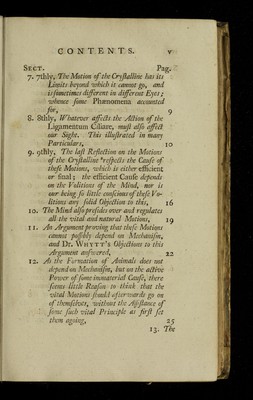 CONTENTS. v
SECT. Pag.
7. 7thly, The Motion of the Cryſtalline has its
Limits beyond which it cannot go, and
is ſometimes different in different Eyes;
whence ſome Phænomena accounted
for, 9
8. 8thly, Whatever affects the Action of the
Ligamentum Ciliare, muſt alſo affect
our Sight. This illuſtrated in many
Particulars, 10
9. 9thly, The laſt Reflection on the Motions
of the Cryſtalline reſpects the Cauſe of
thoſe Motions, which is either efficient
or final; the efficient Cauſe depends
on the Volitions of the Mind, nor is
our being ſo little conſcious of theſe Vo-
litions any ſolid Objection to this, 16
10. The Mind alſo preſides over and regulates
all the vital and natural Motions, 19
11. An Argument proving that theſe Motions
cannot poſſibly depend on Mechaniſm,
and Dr. WHYTT's Objections to this
Argument anſwered, 22
12. As the Formation of Animals does not
depend on Mechaniſm, but on the active
Power of ſome immaterial Cauſe, there
ſeems little Reaſon to think that the
vital Motions ſhould afterwards go on
of themſelves, without the Aſſiſtance of
ſome ſuch vital Principle as firſt ſet
them agoing, 25
13. The